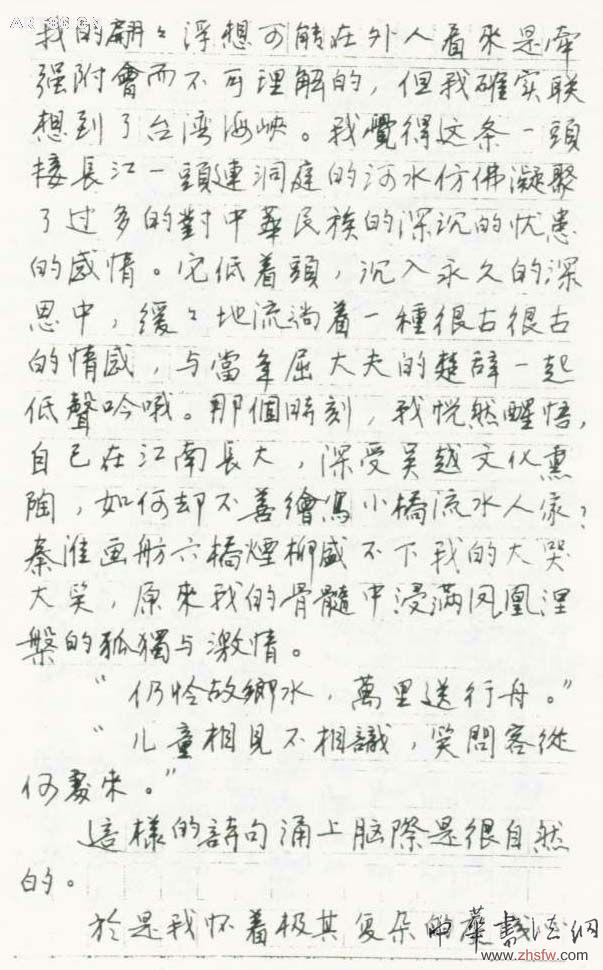 我的翩々浮想可能在外人看來是牽
强附會而不可理解的，但我確实联
想到了台湾海峽。我覺得这条一頭
接長江一頭連洞庭的河水仿佛凝聚
了过多的對中華民族的深沉的忧患
的感情。它低着頭，沉入永久的深
思中，緩々地流淌着一種很古很古
的情感，与當年屈大夫的楚辞一起
低聲吟哦。那個時刻，我恍然醒悟，
自己在江南長大，深受吴越文化熏
陶，如何却不善繪寫小橋流水人家？
秦淮画舫六橋煙柳盛不下我的大哭
大笑，原來我的骨髓中浸满凤凰涅
槃的孤獨与激情。
“仍怜故鄉水，萬里送行舟。”
“儿童相見不相識，笑問客從
何處来。”
這樣的詩句涌上脑際是很自然
的。
於是我怀着极其复杂的
中華書法網
www.zhsfw.com